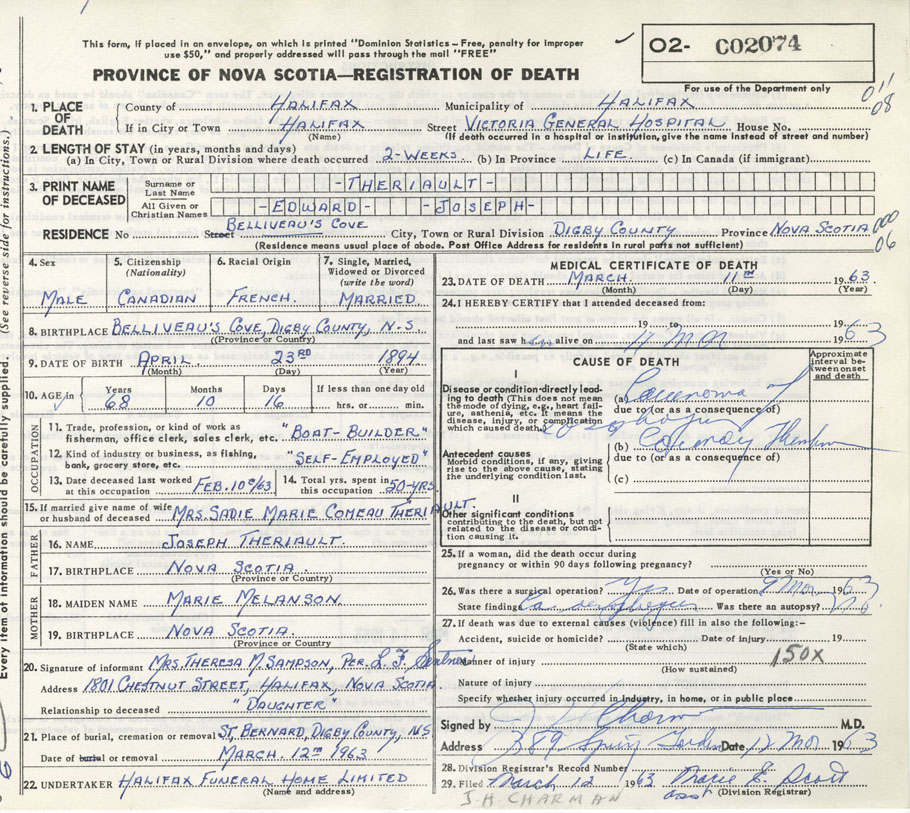 This form, if placed in an envelope, on which is printed "Dominion Statistics – Free, penalty for improper
use $50," and properly addressed will pass through the mail "FREE"
✓ 02- C02074
PROVINCE OF NOVA SCOTIA—REGISTRATION OF DEATH
For use of the Department only
011
08
1. PLACE OF DEATH
County of HALIFAX Municipality of HALIFAX
If in City or Town HALIFAX Street VICTORIA GENERAL HOSPITAL. House No.
(Name) (If death occurred in a hospital or institution, give the name instead of street and number)
2. LENGTH OF STAY (in years, months and days)
(a) In City, Town or Rural Division where death occurred 2-WEEKS (b) In Province LIFE. (c) In Canada (if immigrant)
3. PRINT NAME OF DECEASED
Surname or Last Name -THERIAULT-
All Given or Christian Names -EDWARD- -JOSEPH-
RESIDENCE No Street BELLIVEAU'S COVE City, Town or Rural Division DIGBY COUNTY Province NOVA SCOTIA 000
06
(Residence means usual place of abode. Post Office Address for residents in rural parts not sufficient)
4. Sex
MALE
5. Citizenship
(Nationality)
CANADIAN
6. Racial Origin
FRENCH.
7. Single, Married,
Widowed or Divorced
(write the word)
MARRIED
8. BIRTHPLACE BELLIVEAU'S COVE, DIGBY COUNTY, N-S
(Province or Country)
9. DATE OF BIRTH APRIL 23RD 1894
(Month) (Day) (Year)
10. AGE in Years 68 Months 10 Days 16 If less than one day old hrs. or min.
✓
OCCUPATION
11. Trade, profession, or kind of work as
fisherman, office clerk, sales clerk, etc. "BOAT-BUILDER"
12. Kind of industry or business, as fishing,
bank, grocery store, etc. "SELF-EMPLOYED"
13. Date deceased last worked
at this occupation FEB. /63
14. Total yrs. spent in
this occupation 50-YRS.
15. If married give name of wife
or husband of deceased MRS. SADIE MARIE COMEAU THERIAULT.
FATHER
16. NAME JOSEPH THERIAULT.
17. BIRTHPLACE NOVA SCOTIA.
(Province or Country)
MOTHER
18. MAIDEN NAME MARIE MELANSON.
19. BIRTHPLACE NOVA SCOTIA.
(Province or Country
20. Signature of informant MRS. THERESA M. SAMPSON, PER. L. F.
Address 1801 CHESTNUT STREET, HALIFAX, NOVA SCOTIA.
Relationship to deceased "DAUGHTER"
21. Place of burial, cremation or removal ST. BERNARD, DIGBY COUNTY, N.S.
Date of burial or removal MARCH. 12TH 1963
22. UNDERTAKER HALIFAX FUNERAL HOME LIMITED
(Name and address)
MEDICAL CERTIFICATE OF DEATH
23. DATE OF DEATH MARCH. 11TH 1963
(Month) (Day) (Year)
24. I HEREBY CERTIFY that I attended deceased from:
19 to 19
and last saw h alive on 11 Mar 1963
CAUSE OF DEATH
Approximate
interval be-
tween onset
and death
I
Disease or condition directly lead-
ing to death (This does not mean
the mode of dying, e.g., heart fail-
ure, asthenia, etc. It means the
disease, injury, or complication
which caused death)
(a) Carcinoma of
oesophagus
due to (or as a consequence of)
Antecedent causes
Morbid conditions, if any, giving
rise to the above cause, stating
the underlying condition last.
(b) Coronary
due to (or as a consequence of)
(c)
II
Other significant conditions
contributing to the death, but not
related to the disease or condi-
tion causing it.
25. If a woman, did the death occur during
pregnancy or within 90 days following pregnancy?
(Yes or No)
26. Was there a surgical operation? Yes Date of operation 9 Mar 1963
State findings Ca oesophagus Was there an autopsy? No
27. If death was due to external causes (violence) fill in also the following:–
Accident, suicide or homicide? Date of injury 19
(State which)
Manner of injury 150X
(How sustained)
Nature of injury
Specify whether injury occurred in industry, in home, or in public place
Signed by J H Charman M.D.
Address 389 Spring Garden Date 12 Mar 1963
28. Division Registrar's Record Number
29. Filed March 12 1963 Marie E. Scott
asst (Division Registrar)
J.H. CHARMAN
Every item of information should be carefully supplied. (See reverse side for instructions.)